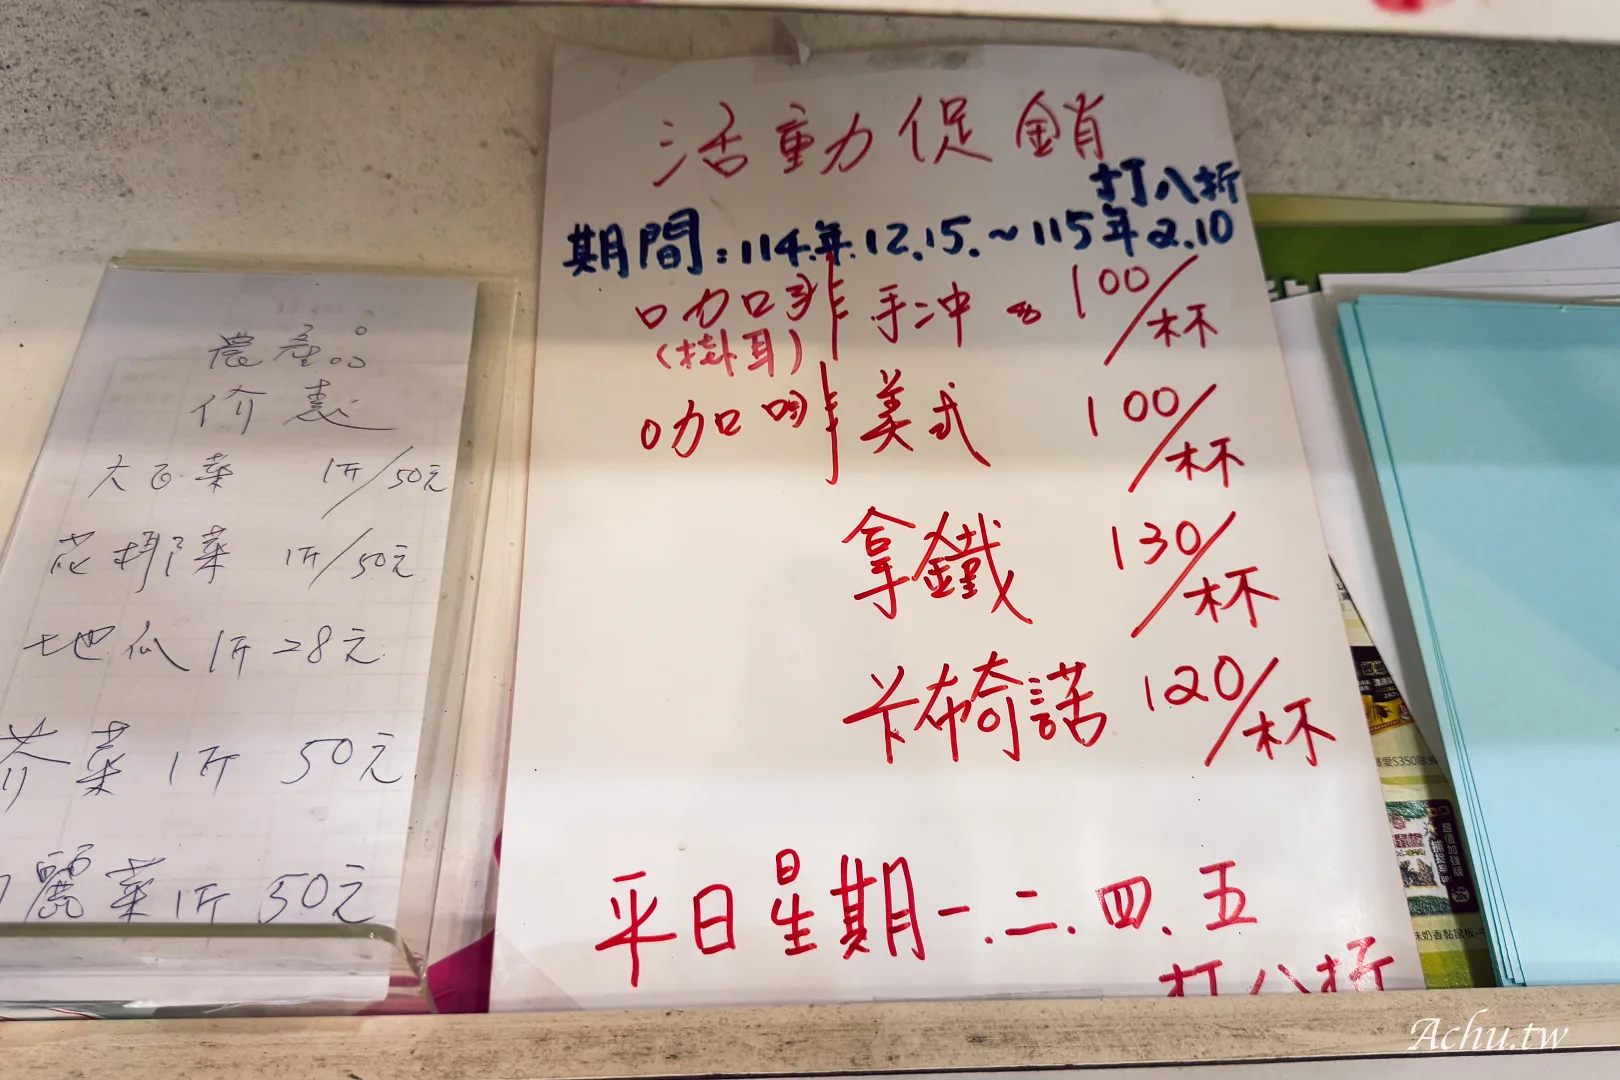 農產品
价表
大白菜 1斤/50元
花椰菜 1斤/50元
地瓜 1斤 28元
芥菜 1斤 50元
麗菜 1斤 50元
活動促銷
打八折
期間:114.年.12.15.~115年2.10
咖啡 手冲 100/杯
(掛耳)
咖啡 美式 100/杯
拿鐵 130/杯
卡布奇諾 120/杯
平日星期一.二.四.五
打八折
Achu.tw